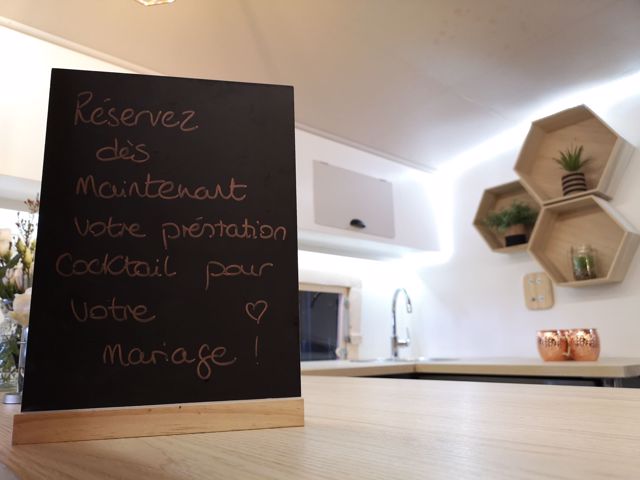 Réservez
dès
Maintenant
votre préstation
Cocktail pour
votre
mariage !